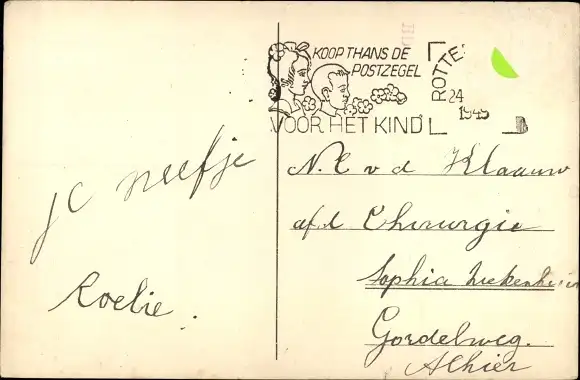 KOOP THANS DE
POSTZEGEL
VOOR HET KIND
ROTTE
24
1945
je neefje
Roelie.
N. C v d Klaauw
afd. Chirurgie
Sophia Ziekenhuis
Gordelweg.
Alhier